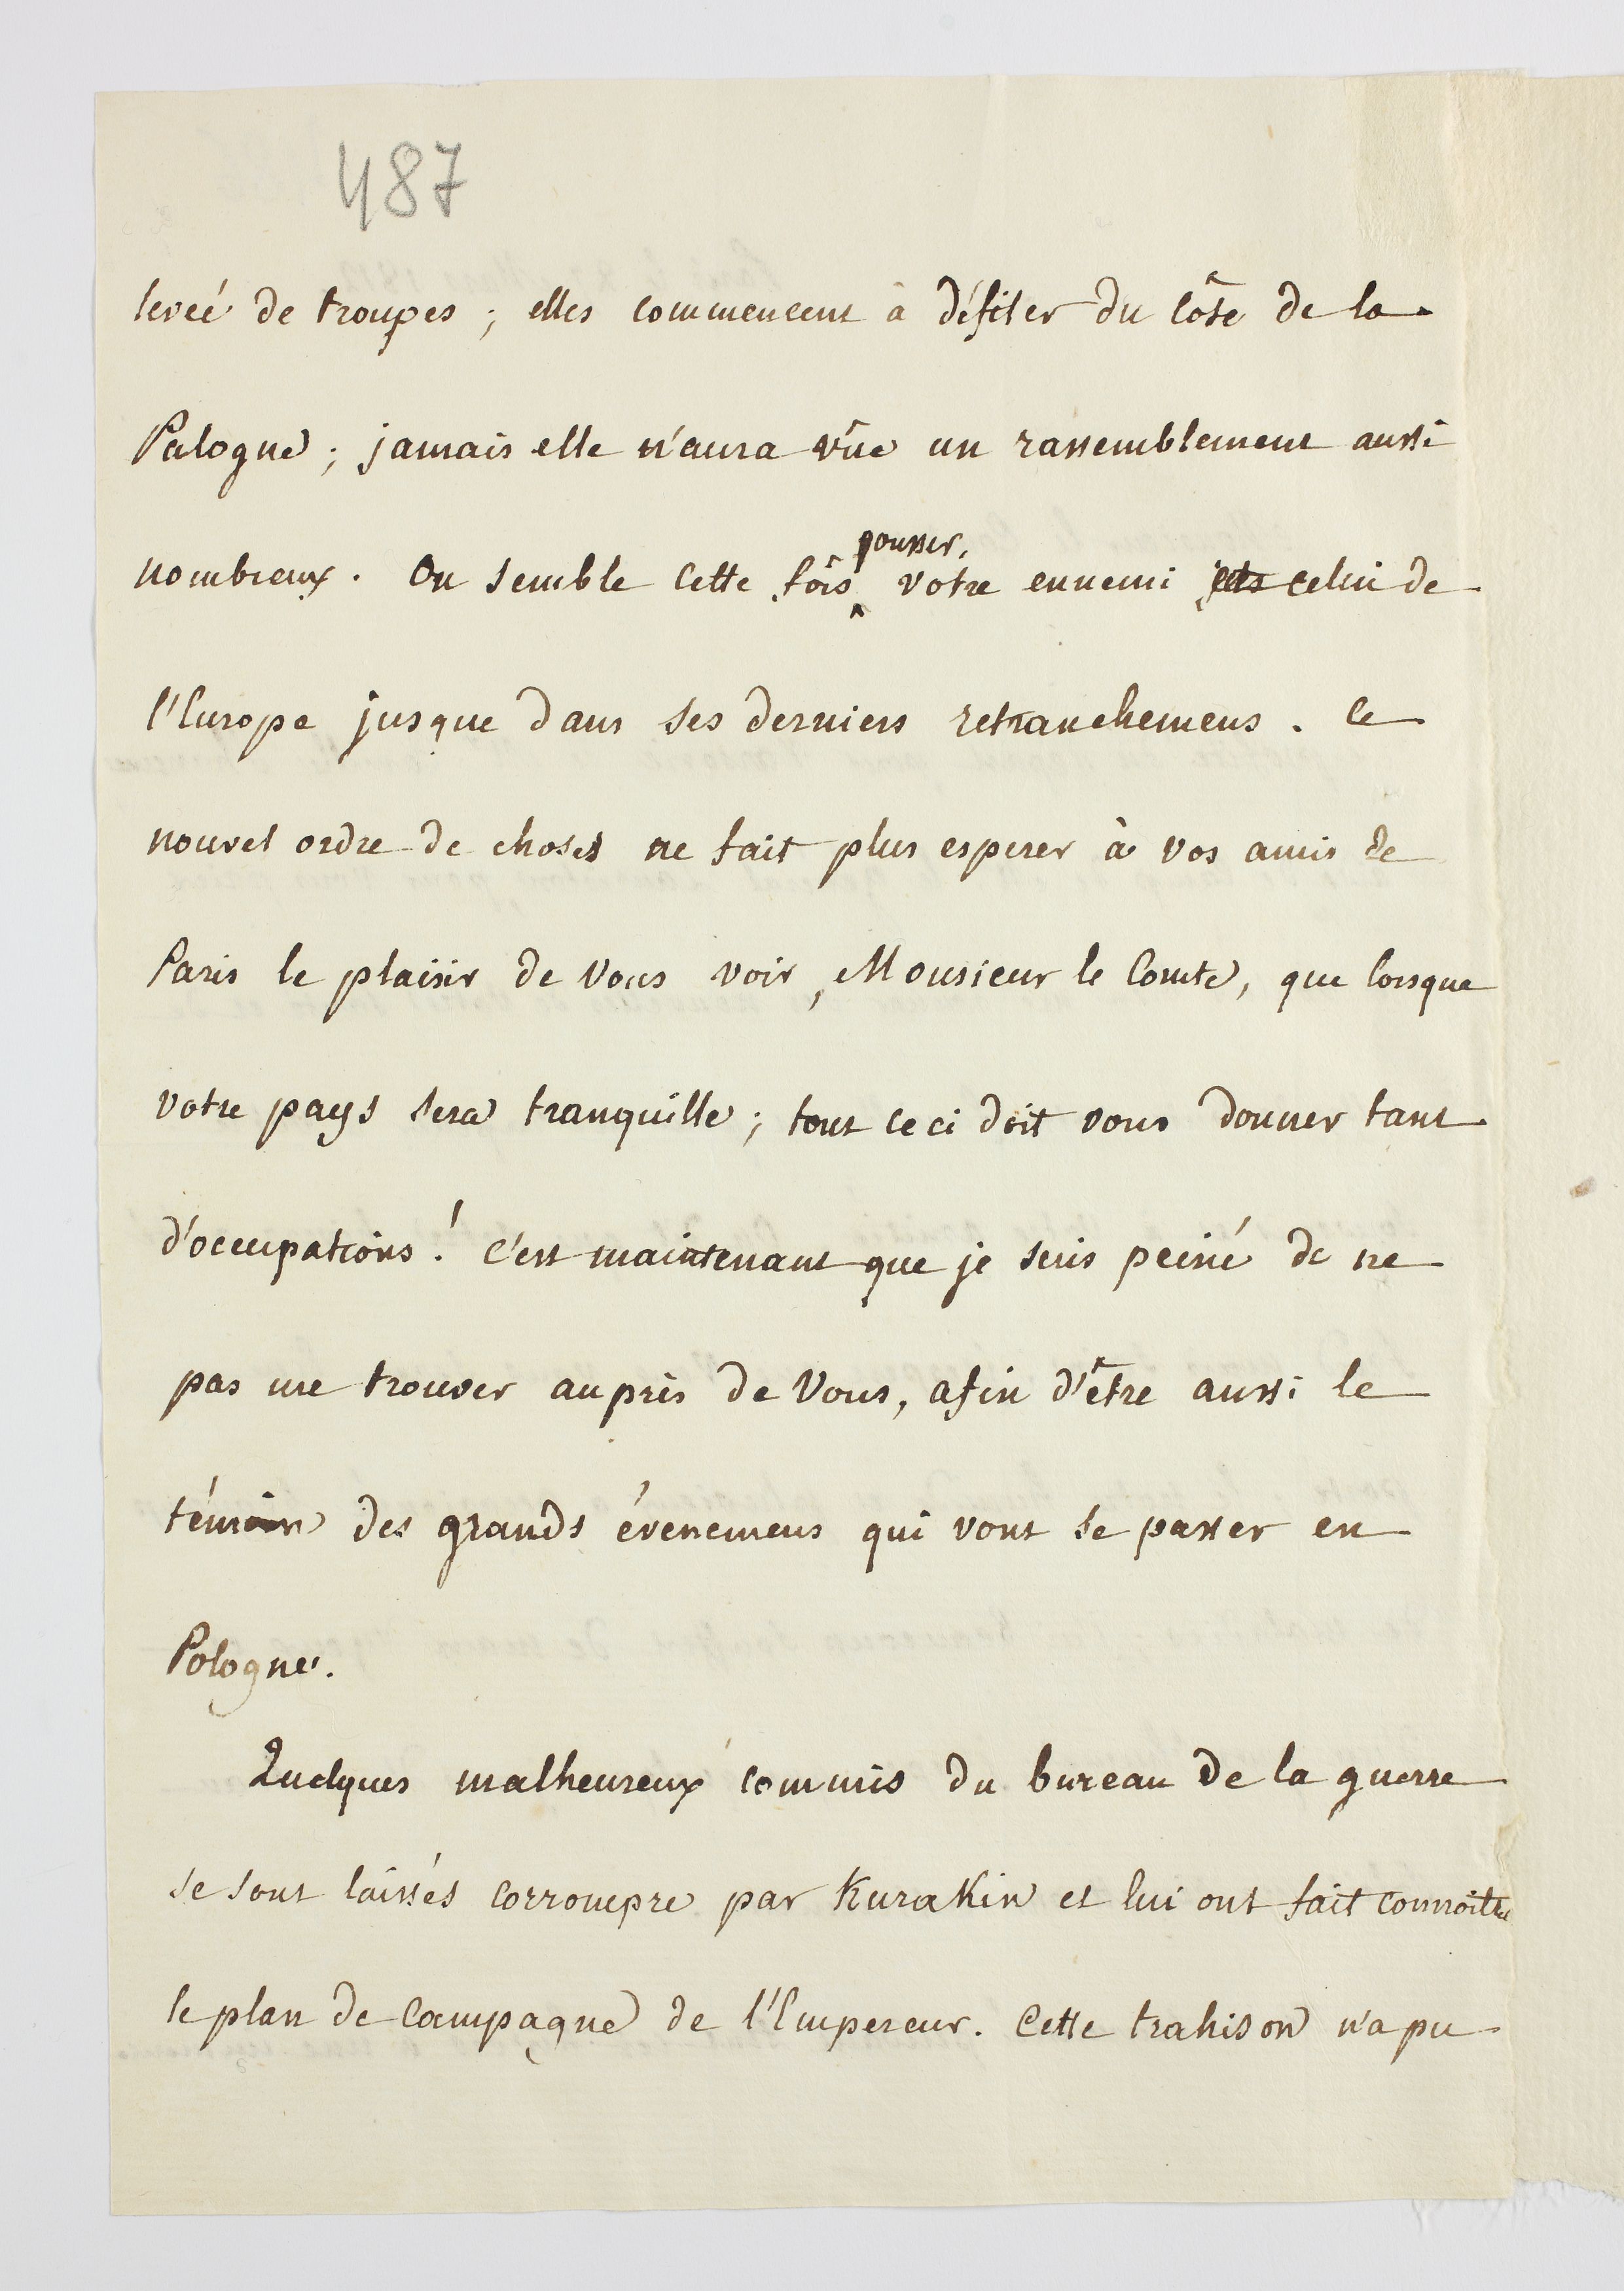 487
leveé de troupes ; elles commencent à défiler du côte de la
Pologne ; jamais elle n'aura vûe un rassemblement aussi
nombreux. On semble cette fois pousser, votre ennemi celui de
l'Europe jusque dans ses derniers retranchemens. Ce
nouvel ordre de choses ne fait plus esperer à vos amis de
Paris le plaisir de vous voir, Monsieur le Comte, que lorsque
votre pays sera tranquille ; tout ceci doit vous donner tant
d'occupations ! C'est maintenant que je suis peiné de ne
pas me trouver auprès de Vous, afin d'être aussi le
témoin des grands évenemens qui vont se passer en
Pologne.
Quelques malheureux commis du bureau de la guerre
se sont laissés corrompre par Kurakin et lui ont fait connoître
le plan de Campagne de l'Empereur. Cette trahison n'a pu